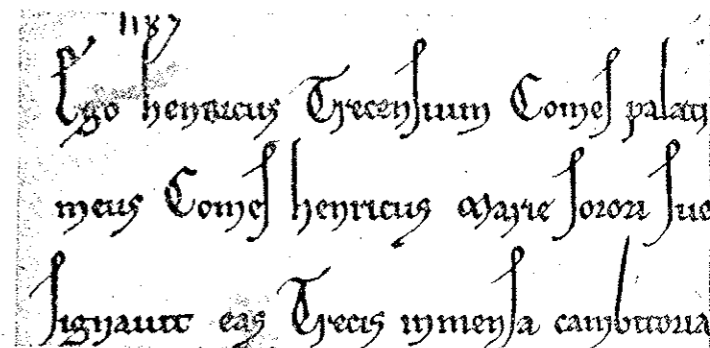 1187
Ego henricus Trecensium Comes palati
meus Comes henricus Marie sorori sue
signauit eas Trecis in mensa cambitoria